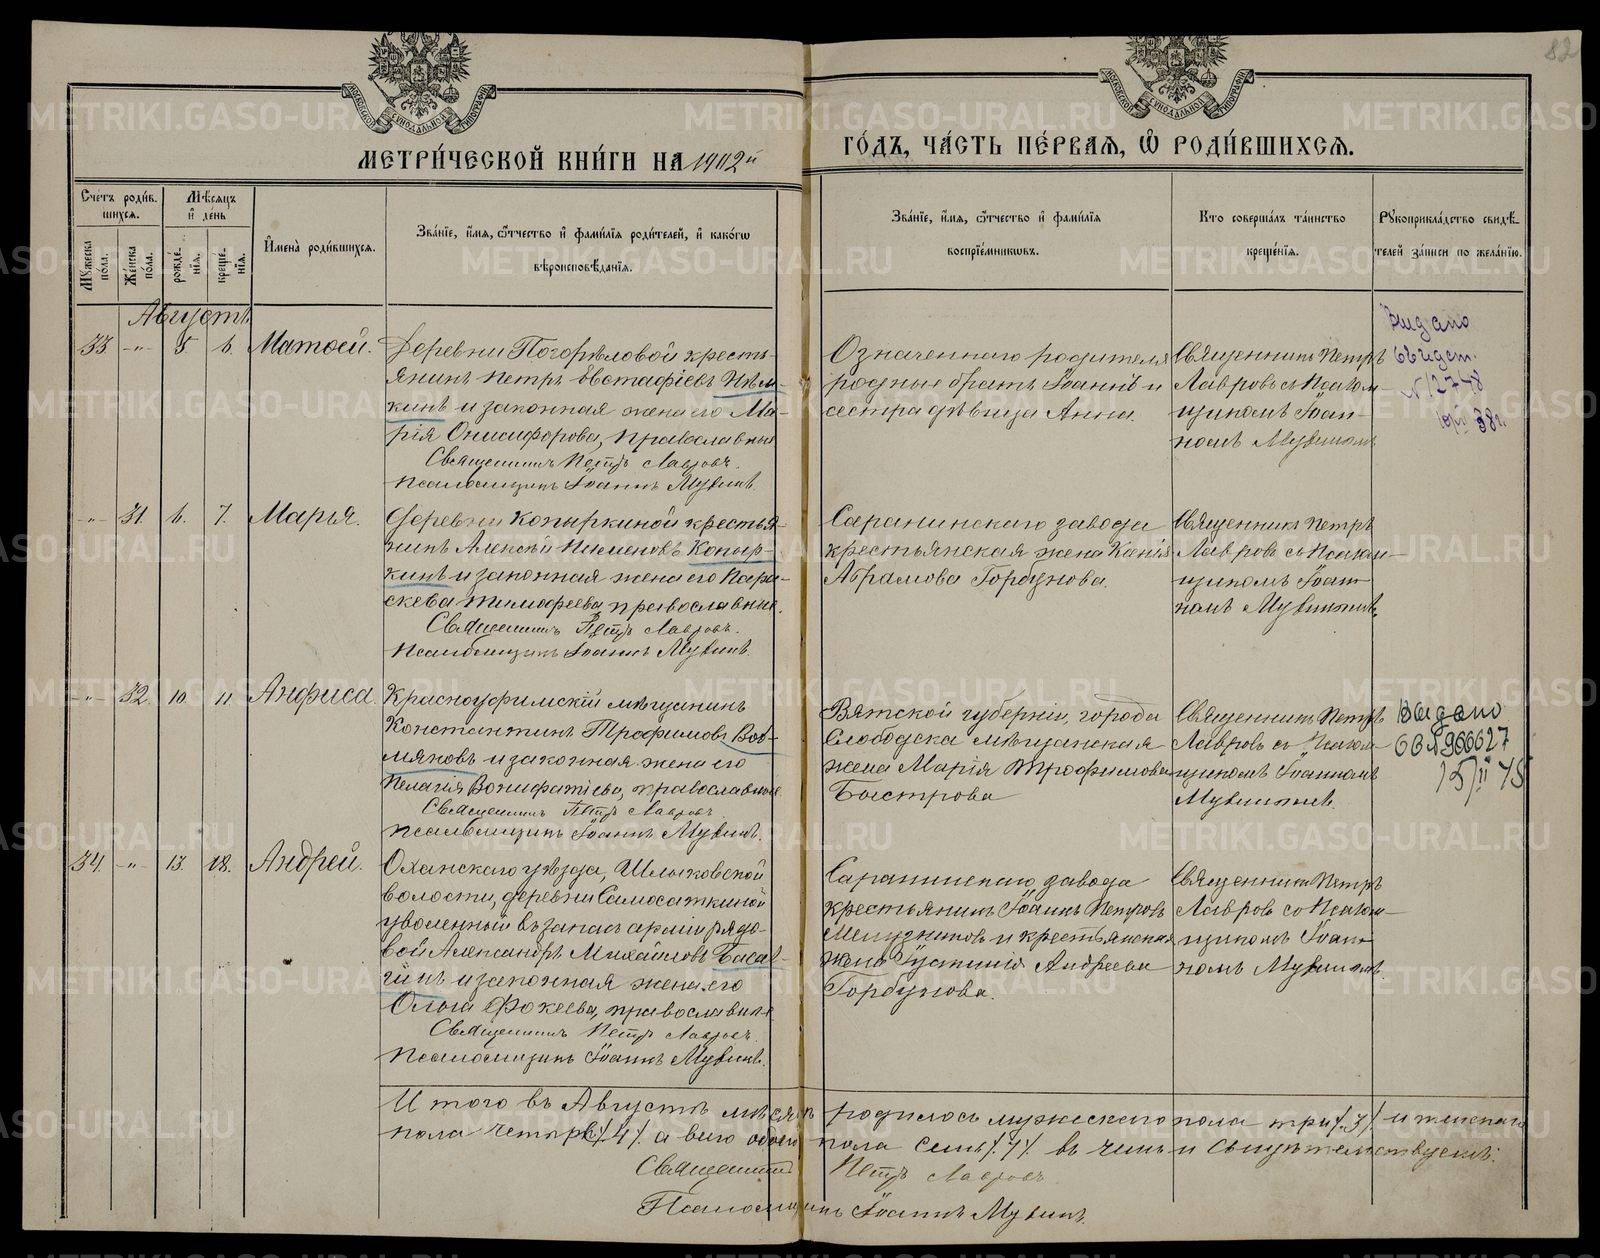 82
МОСКОВСКОЙ СѴНОДАЛЬНОЙ ТИПОГРАФІИ
МОСКОВСКОЙ СѴНОДАЛЬНОЙ ТИПОГРАФІИ
МЕТРИ́ЧЕСКОЙ КНИ́ГИ НА 1902й
ГО́ДЪ, ЧА́СТЬ ПЕ́РВАЯ, Ѡ РОДИ́ВШИХСЯ.
Сче́тъ роди́в-
шихся.
Мꙋ́жеска по́ла.
Же́нска по́ла.
Мѣ́сяцъ
и҆ де́нь
рожде́-
нїя.
креще́-
нїя.
И҆мена̀ роди́вшихся.
Зва́нїе, и҆́мя, ѻ҆́тчество и҆ фами́лїя роди́телей, и҆ како́гѡ
вѣроисповѣ́данїя.
Зва́нїе, и҆́мя, ѻ҆́тчество и҆ фами́лїя
воспрїе́мникѡвъ.
Кто̀ соверша́лъ та́инство
креще́нїя.
Рꙋкоприкла́дство свидѣ́-
телей за́писи по жела́нїю.
Августъ
33 -"- 5 6. Матѳей.
Деревни Погорѣловой кресть-
янинъ Петръ Евстафіевъ
и законная жена его Ма-
рія Онисифорова, православные
Священникъ Петръ Лавровъ.
Псаломщикъ Іоаннъ
Означеннаго родителя
родные братъ Іоаннъ и
сестра дѣвица Анна.
Священникъ Петръ
Лавровъ съ Псалом-
щикомъ Іоан-
номъ
Выдано
свидет.
№ 2748
38г.
-"- 31. 6. 7. Марья.
Деревни Копыркиной крестья-
нинъ Алексѣй Пименовъ Копыр-
кинъ и законная жена его Пара-
скева Тимофеева, православные.
Священникъ Петръ Лавровъ.
Псаломщикъ Іоаннъ
Саранинскаго завода
крестьянская жена
Абрамова Горбунова
Священникъ Петръ
Лавровъ съ Псалом-
щикомъ Іоан-
номъ
-"- 32 10. 11. Анфиса
Красноуфимскій мѣщанинъ
Константинъ Трофимовъ
и законная жена его
Пелагія Вонифатіева, православные.
Священникъ Петръ Лавровъ
Псаломщикъ Іоаннъ
Вятской губерніи, города
Слободска мѣщанская
жена Марія Трофимова
Быстрова
Священникъ Петръ
Лавровъ съ Псалом-
щикомъ Іоанномъ
Выдано
СВ № 966627
15/II 75
34. -"- 13. 18. Андрей.
Оханскаго уѣзда, Шлыковской
волости, деревни Самосаткиной
уволенный въ запасъ арміи рядо-
вой Александръ Михайловъ
и законная жена его
Ольга Фокеева, православные
Священникъ Петръ Лавровъ.
Псаломщикъ Іоаннъ
Саранинскаго завода
крестьянинъ Іоаннъ Петровъ
и крестьянская
жена Іустинія Андреева
Горбунова.
Священникъ Петръ
Лавровъ со Псалом-
щикомъ Іоан-
номъ
Итого въ Августѣ мѣсяцѣ родилось мужескаго пола три /.3/. и женскаго
пола четыре /.4/. а всего обоего пола семь /.7/. въ чемъ и свидѣтельствуемъ:
Священникъ Петръ Лавровъ
Псаломщикъ Іоаннъ
METRIKI.GASO-URAL.RU